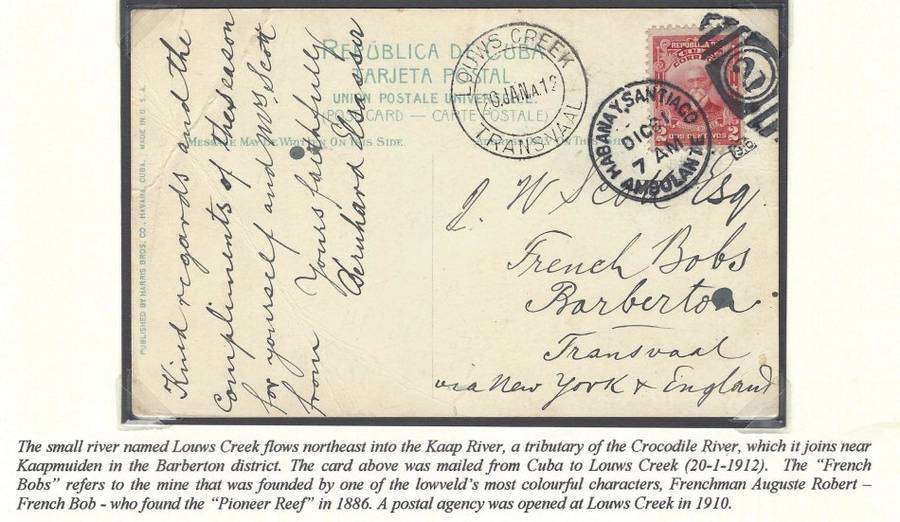 REPÚBLICA DE CUBA
TARJETA POSTAL
UNION POSTALE UNIVERSELLE.
(POSTCARD — CARTE POSTALE)
MESSAGE MAY BE WRITTEN ON THIS SIDE.
PUBLISHED BY HARRIS BROS. CO., HAVANA, CUBA. MADE IN U. S. A.
Kind regards and the
compliments of the season
for yourself and Mrs. Scott
from Yours faithfully
Bernhard
LOUWS CREEK
20.JAN.12
TRANSVAAL
REPUBLICA DE CUBA
CORREOS
2 DOS CENTAVOS 2
HABANA Y SANTIAGO
DIC 21
7 AM
AMBULANTE
21
W Scott Esq.
French Bobs
Barberton
Transvaal
via New York & England
The small river named Louws Creek flows northeast into the Kaap River, a tributary of the Crocodile River, which it joins near
Kaapmuiden in the Barberton district. The card above was mailed from Cuba to Louws Creek (20-1-1912). The “French
Bobs” refers to the mine that was founded by one of the lowveld’s most colourful characters, Frenchman Auguste Robert –
French Bob - who found the “Pioneer Reef” in 1886. A postal agency was opened at Louws Creek in 1910.